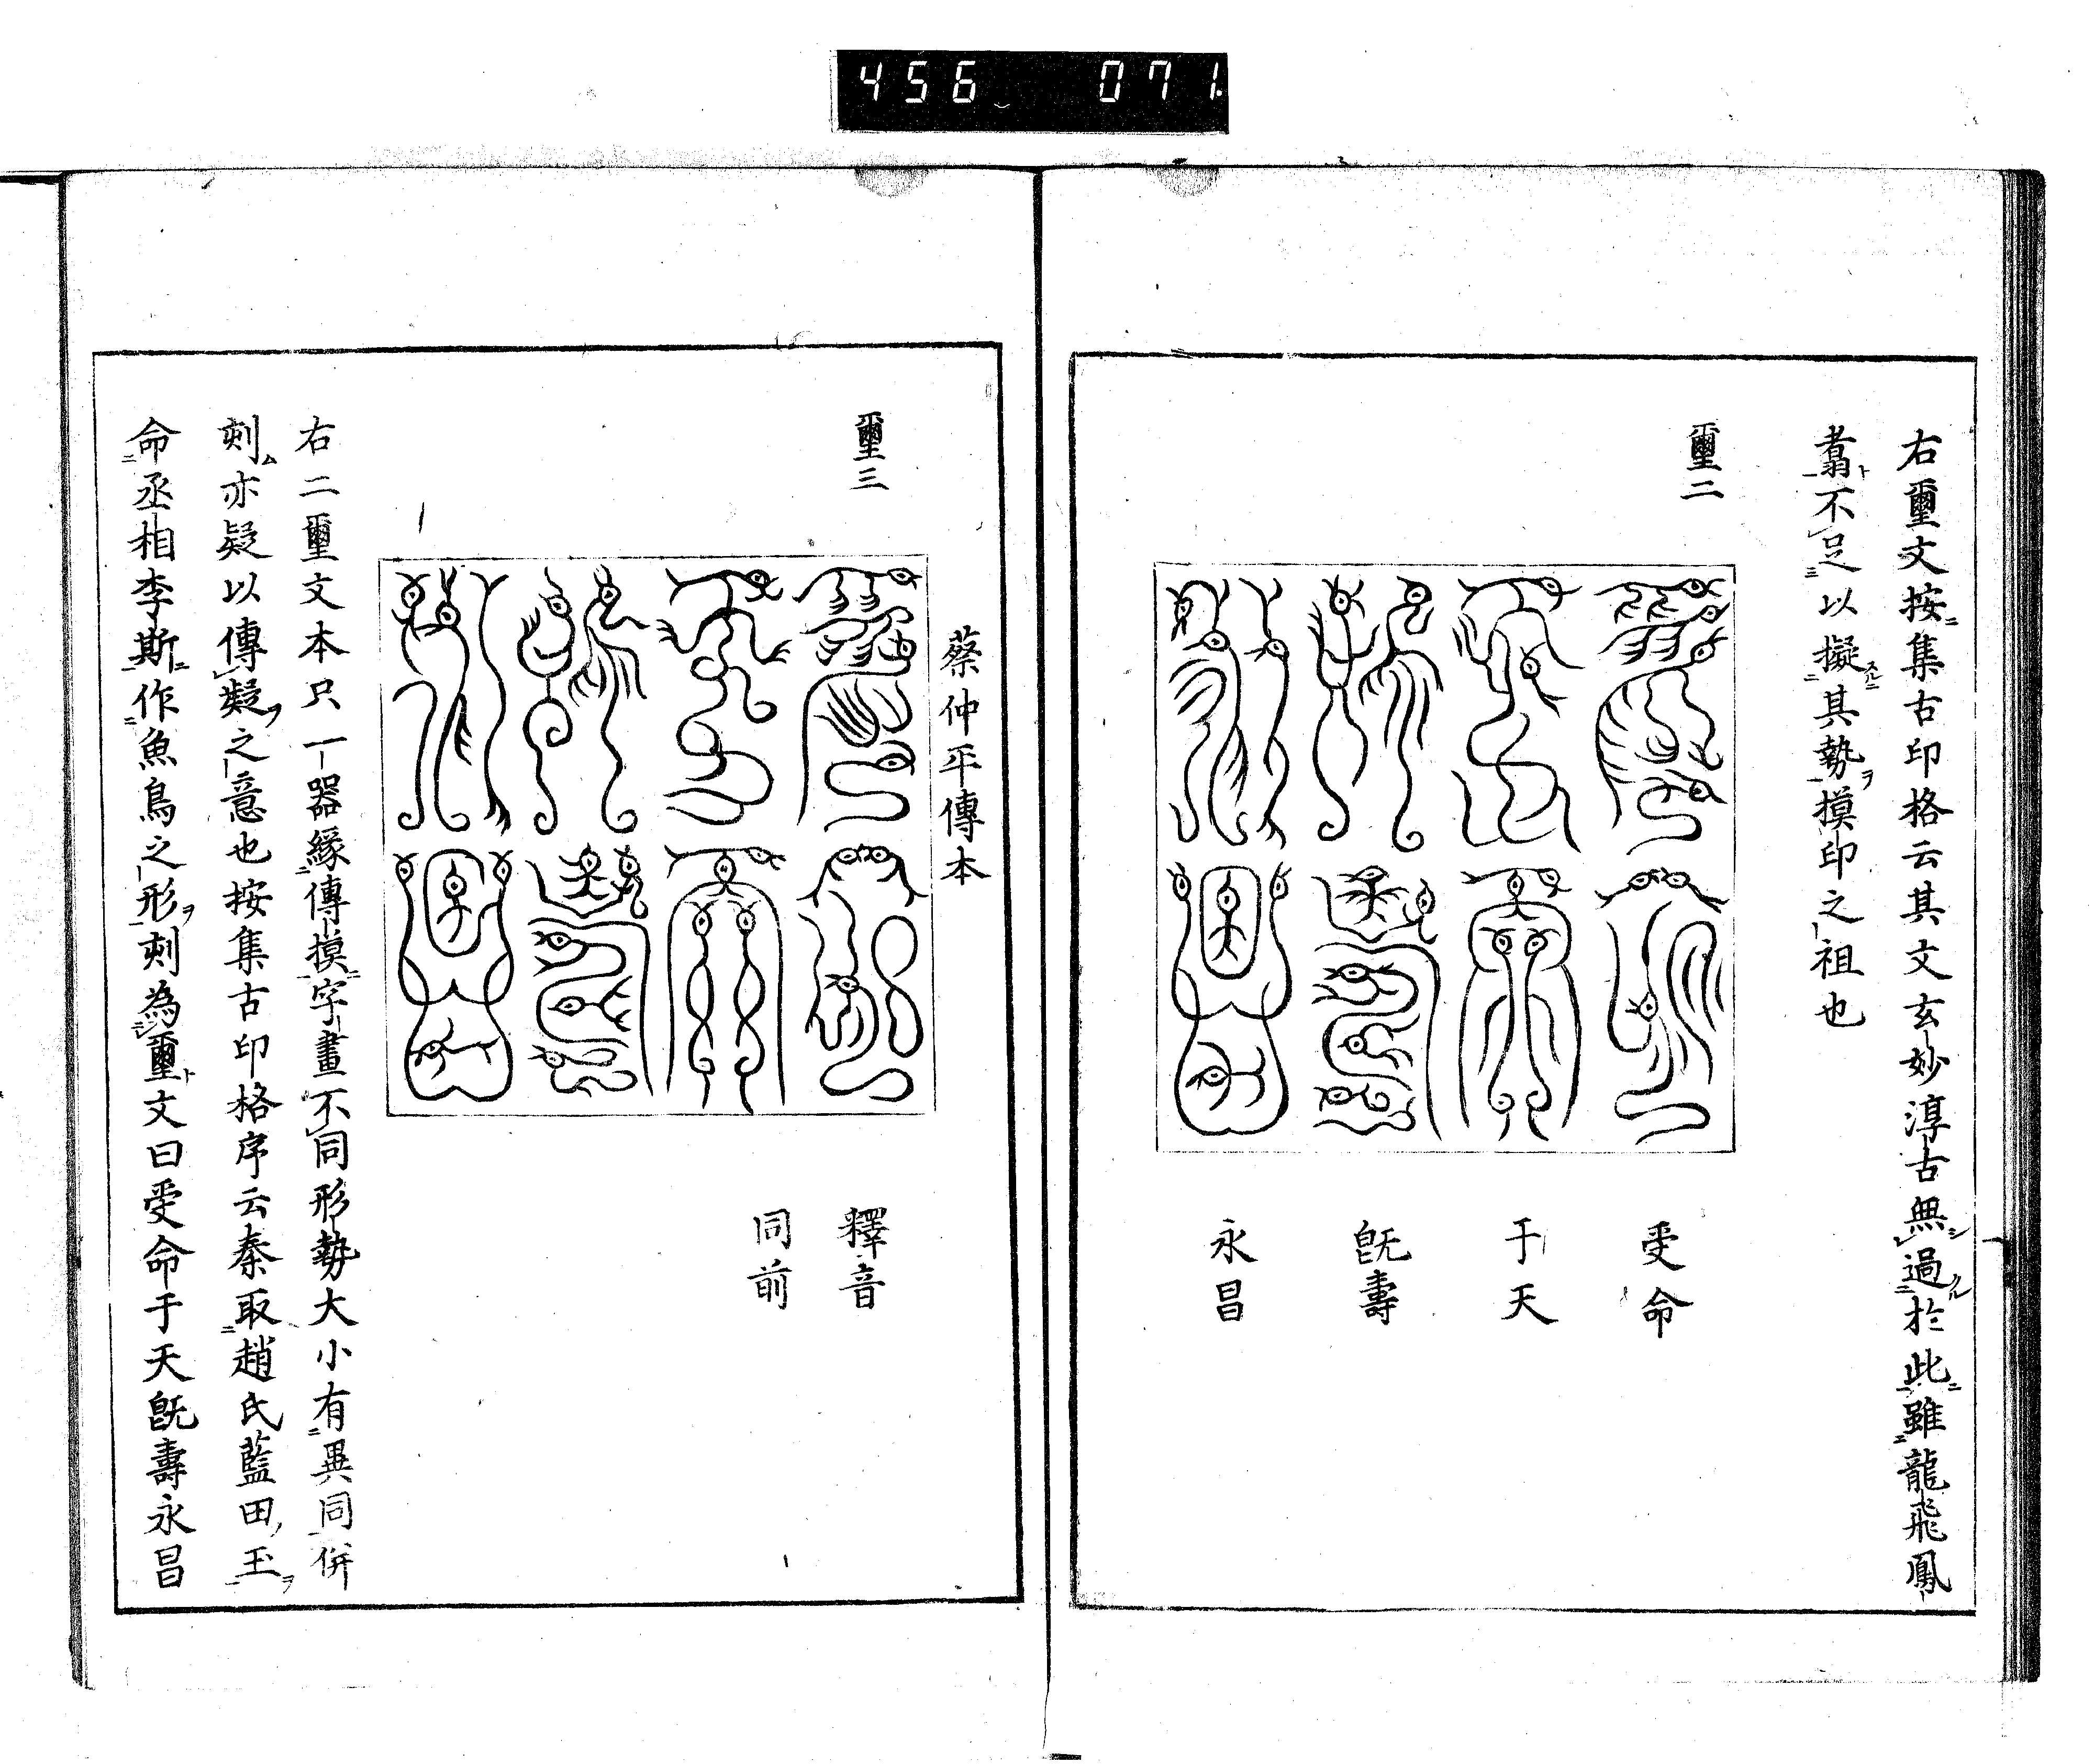 456 071
右璽文按集古印格云其文玄妙淳古無過於此雖龍飛鳳
翥不足以擬其勢摸印之祖也
璽二
受命
于天
既壽
永昌
璽三
蔡仲平傳本
釋音
同前
右二璽文本只一器緣傳摸字畫不同形勢大小有異同併
刻亦疑以傳疑之意也按集古印格序云秦取趙氏藍田玉
命丞相李斯作魚鳥之形刻為璽文曰受命于天既壽永昌